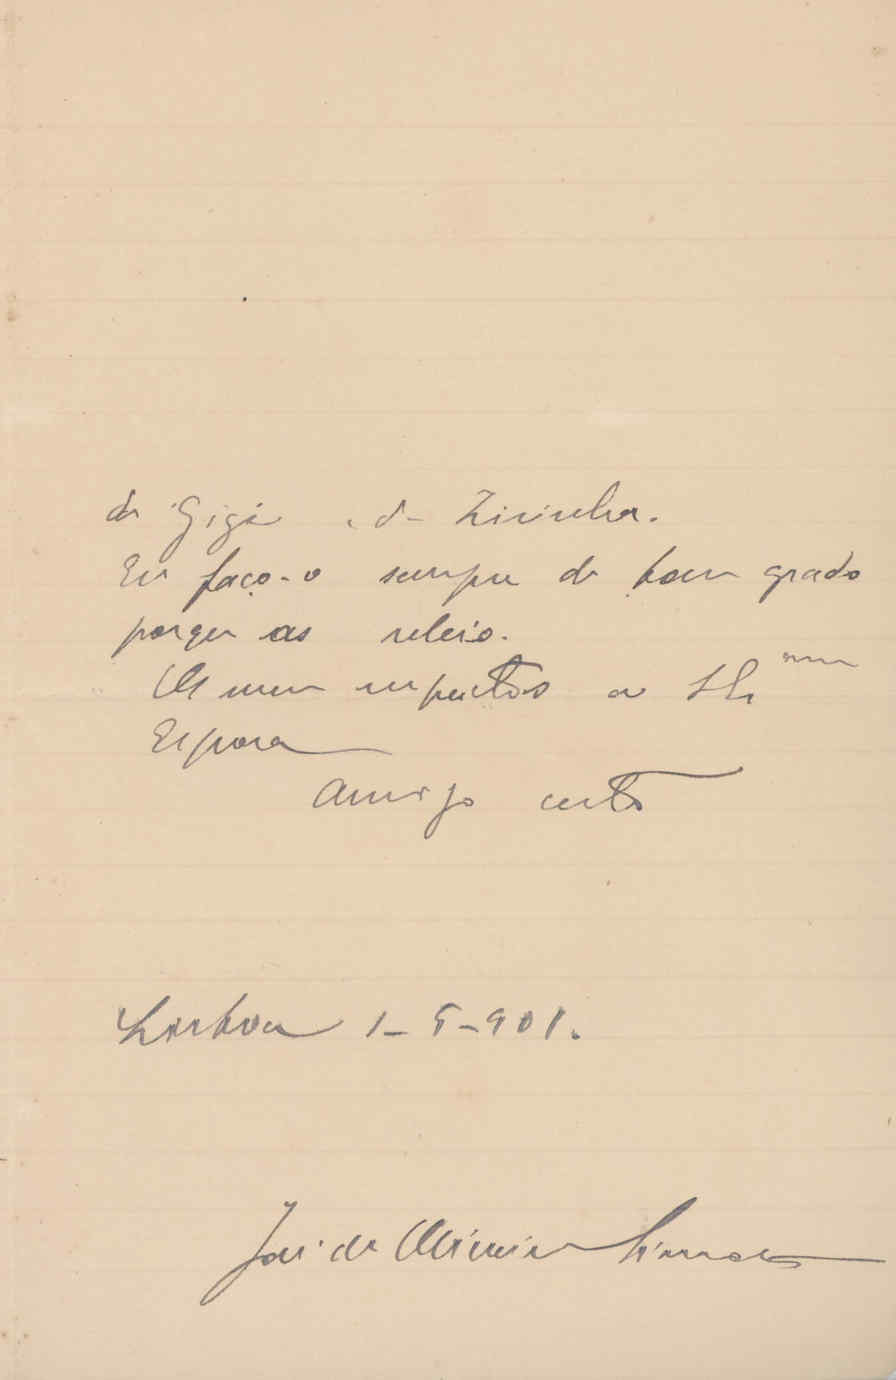 de Gigi e de Zizinha.
Eu faço-o sempre de bom grado
porque as releio.
Os meus respeitos a
Esposa
Amigo certo
Lisboa 1-5-901.
José de Oliveira Simões